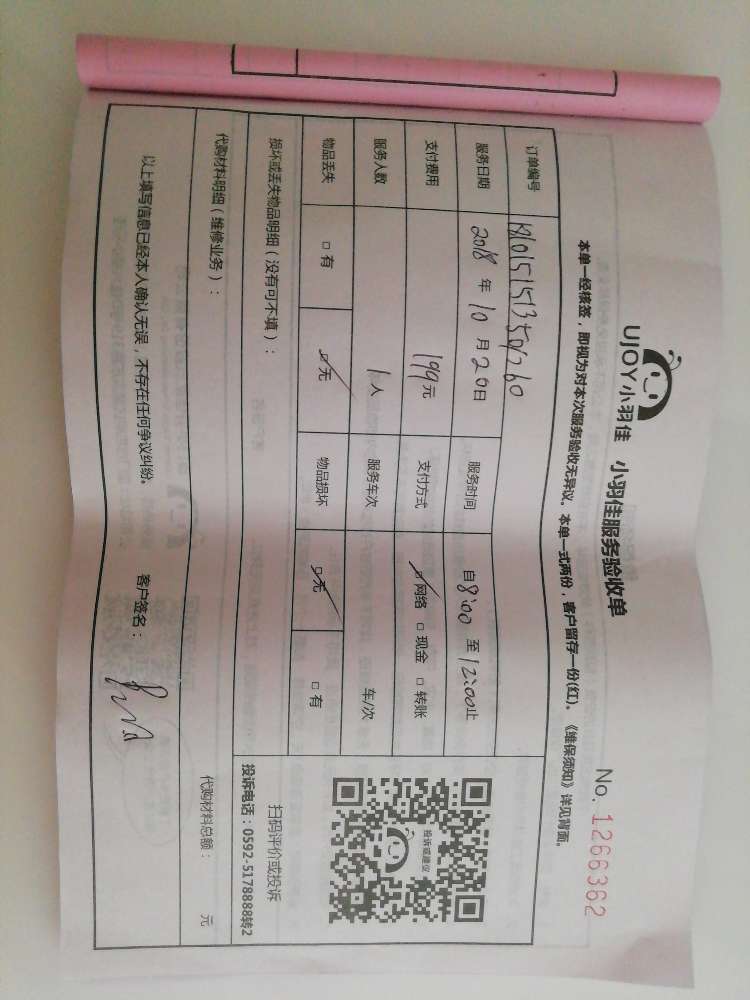 UJOY小羽佳 小羽佳服务验收单
No. 1266362
本单一经核签，即视为对本次服务验收无异议。本单一式两份，客户留存一份(红)。《维保须知》详见背面。
订单编号
服务日期 2018 年 10 月 20 日 服务时间 自 8:00 至 12:00 止
支付费用 199 元 支付方式 □网络 □现金 □转账
服务人数 1 人 服务车次 车/次
物品丢失 □有 □无 物品损坏 □无 □有
投诉或建议
扫码评价或投诉
投诉电话：0592-5178888转2
损坏或丢失物品明细（没有可不填）：
代购材料明细（维修业务）： 代购材料总额： 元
以上填写信息已经本人确认无误，不存在任何争议纠纷。 客户签名：